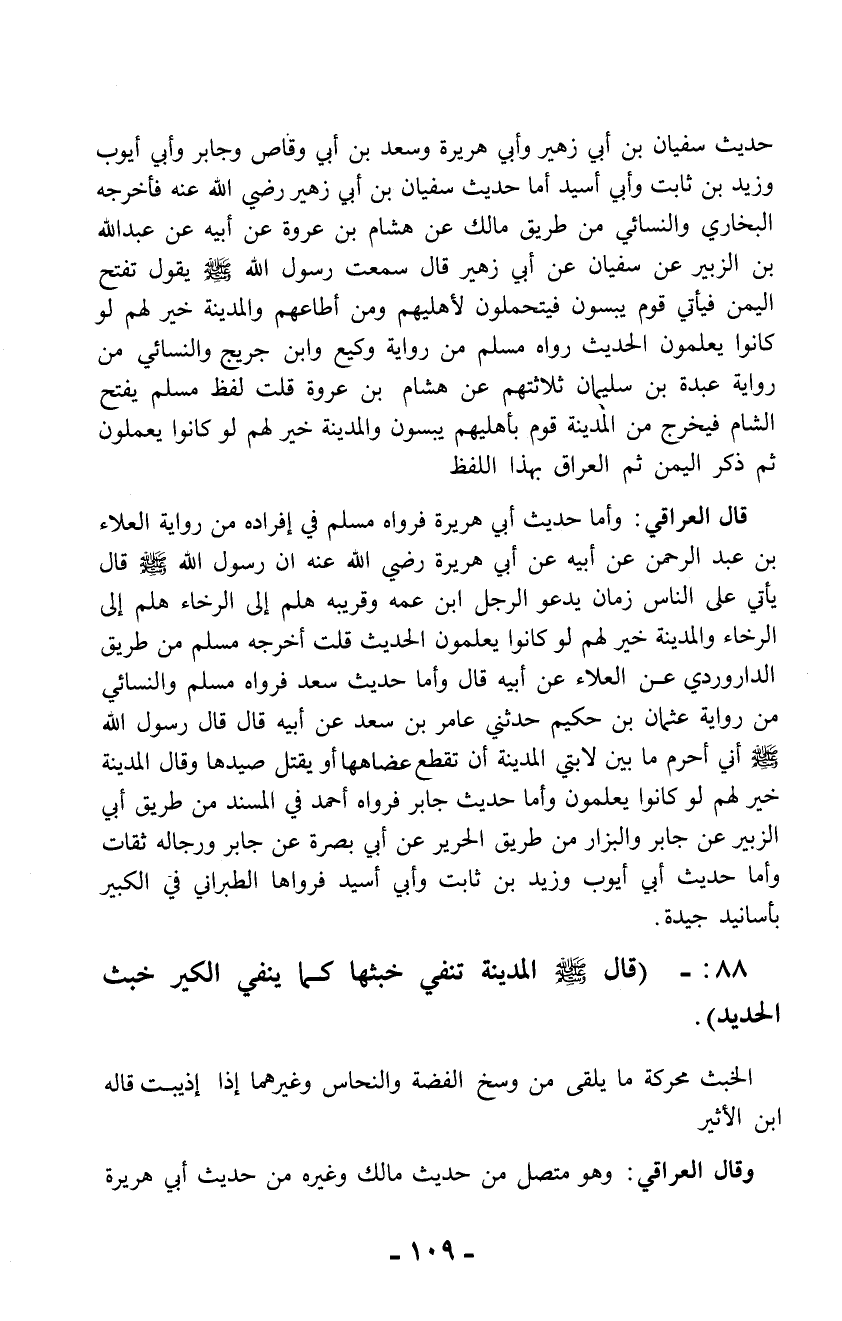 حديث سفيان بن أبي زهير وأبي هريرة وسعد بن أبي وقاص وجابر وأبي أيوب
وزيد بن ثابت وأبي أسيد أما حديث سفيان بن أبي زهير رضي الله عنه فأخرجه
البخاري والنسائي من طريق مالك عن هشام بن عروة عن أبيه عن عبدالله
بن الزبير عن سفيان عن أبي زهير قال سمعت رسول الله ﷺ يقول تفتح
اليمن فيأتي قوم يبسون فيتحملون لأهليهم ومن أطاعهم والمدينة خير لهم لو
كانوا يعلمون الحديث رواه مسلم من رواية وكيع وابن جريج والنسائي من
رواية عبدة بن سليمان ثلاثتهم عن هشام بن عروة قلت لفظ مسلم يفتح
الشام فيخرج من المدينة قوم بأهليهم يبسون والمدينة خير لهم لو كانوا يعملون
ثم ذكر اليمن ثم العراق بهذا اللفظ
قال العراقي: وأما حديث أبي هريرة فرواه مسلم في إفراده من رواية العلاء
بن عبد الرحمن عن أبيه عن أبي هريرة رضي الله عنه ان رسول الله ﷺ قال
يأتي على الناس زمان يدعو الرجل ابن عمه وقريبه هلم إلى الرخاء هلم إلى
الرخاء والمدينة خير لهم لو كانوا يعلمون الحديث قلت أخرجه مسلم من طريق
الداروردي عن العلاء عن أبيه قال وأما حديث سعد فرواه مسلم والنسائي
من رواية عثمان بن حكيم حدثني عامر بن سعد عن أبيه قال قال رسول الله
ﷺ أني أحرم ما بين لابتي المدينة أن تقطع عضاهها أو يقتل صيدها وقال المدينة
خير لهم لو كانوا يعلمون وأما حديث جابر فرواه أحمد في المسند من طريق أبي
الزبير عن جابر والبزار من طريق الحرير عن أبي بصرة عن جابر ورجاله ثقات
وأما حديث أبي أيوب وزيد بن ثابت وأبي أسيد فرواها الطبراني في الكبير
بأسانيد جيدة.
٨٨: - (قال ﷺ المدينة تنفي خبثها كما ينفي الكير خبث
الحديد).
الخبث محركة ما يلقى من وسخ الفضة والنحاس وغيرهما إذا إذيبت قاله
ابن الأثير
وقال العراقي: وهو متصل من حديث مالك وغيره من حديث أبي هريرة
- ١٠٩ -